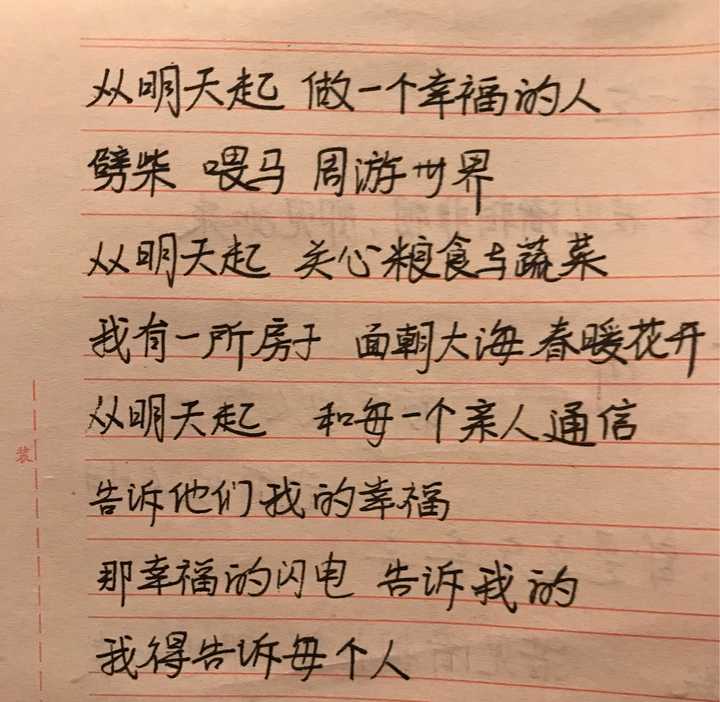 从明天起 做一个幸福的人
劈柴 喂马 周游世界
从明天起 关心粮食与蔬菜
我有一所房子 面朝大海 春暖花开
从明天起 和每一个亲人通信
装
告诉他们我的幸福
那幸福的闪电 告诉我的
我得告诉每个人